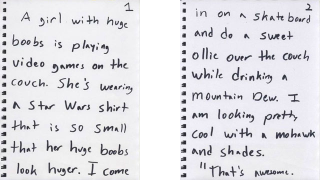 1
A girl with huge
boobs is playing
video games on the
couch. She's wearing
a Star Wars shirt
that is so small
that her huge boobs
look huger. I come
2
in on a skateboard
and do a sweet
ollie over the couch
while drinking a
mountain Dew. I
am looking pretty
cool with a mohawk
and shades.
"That's awesome.